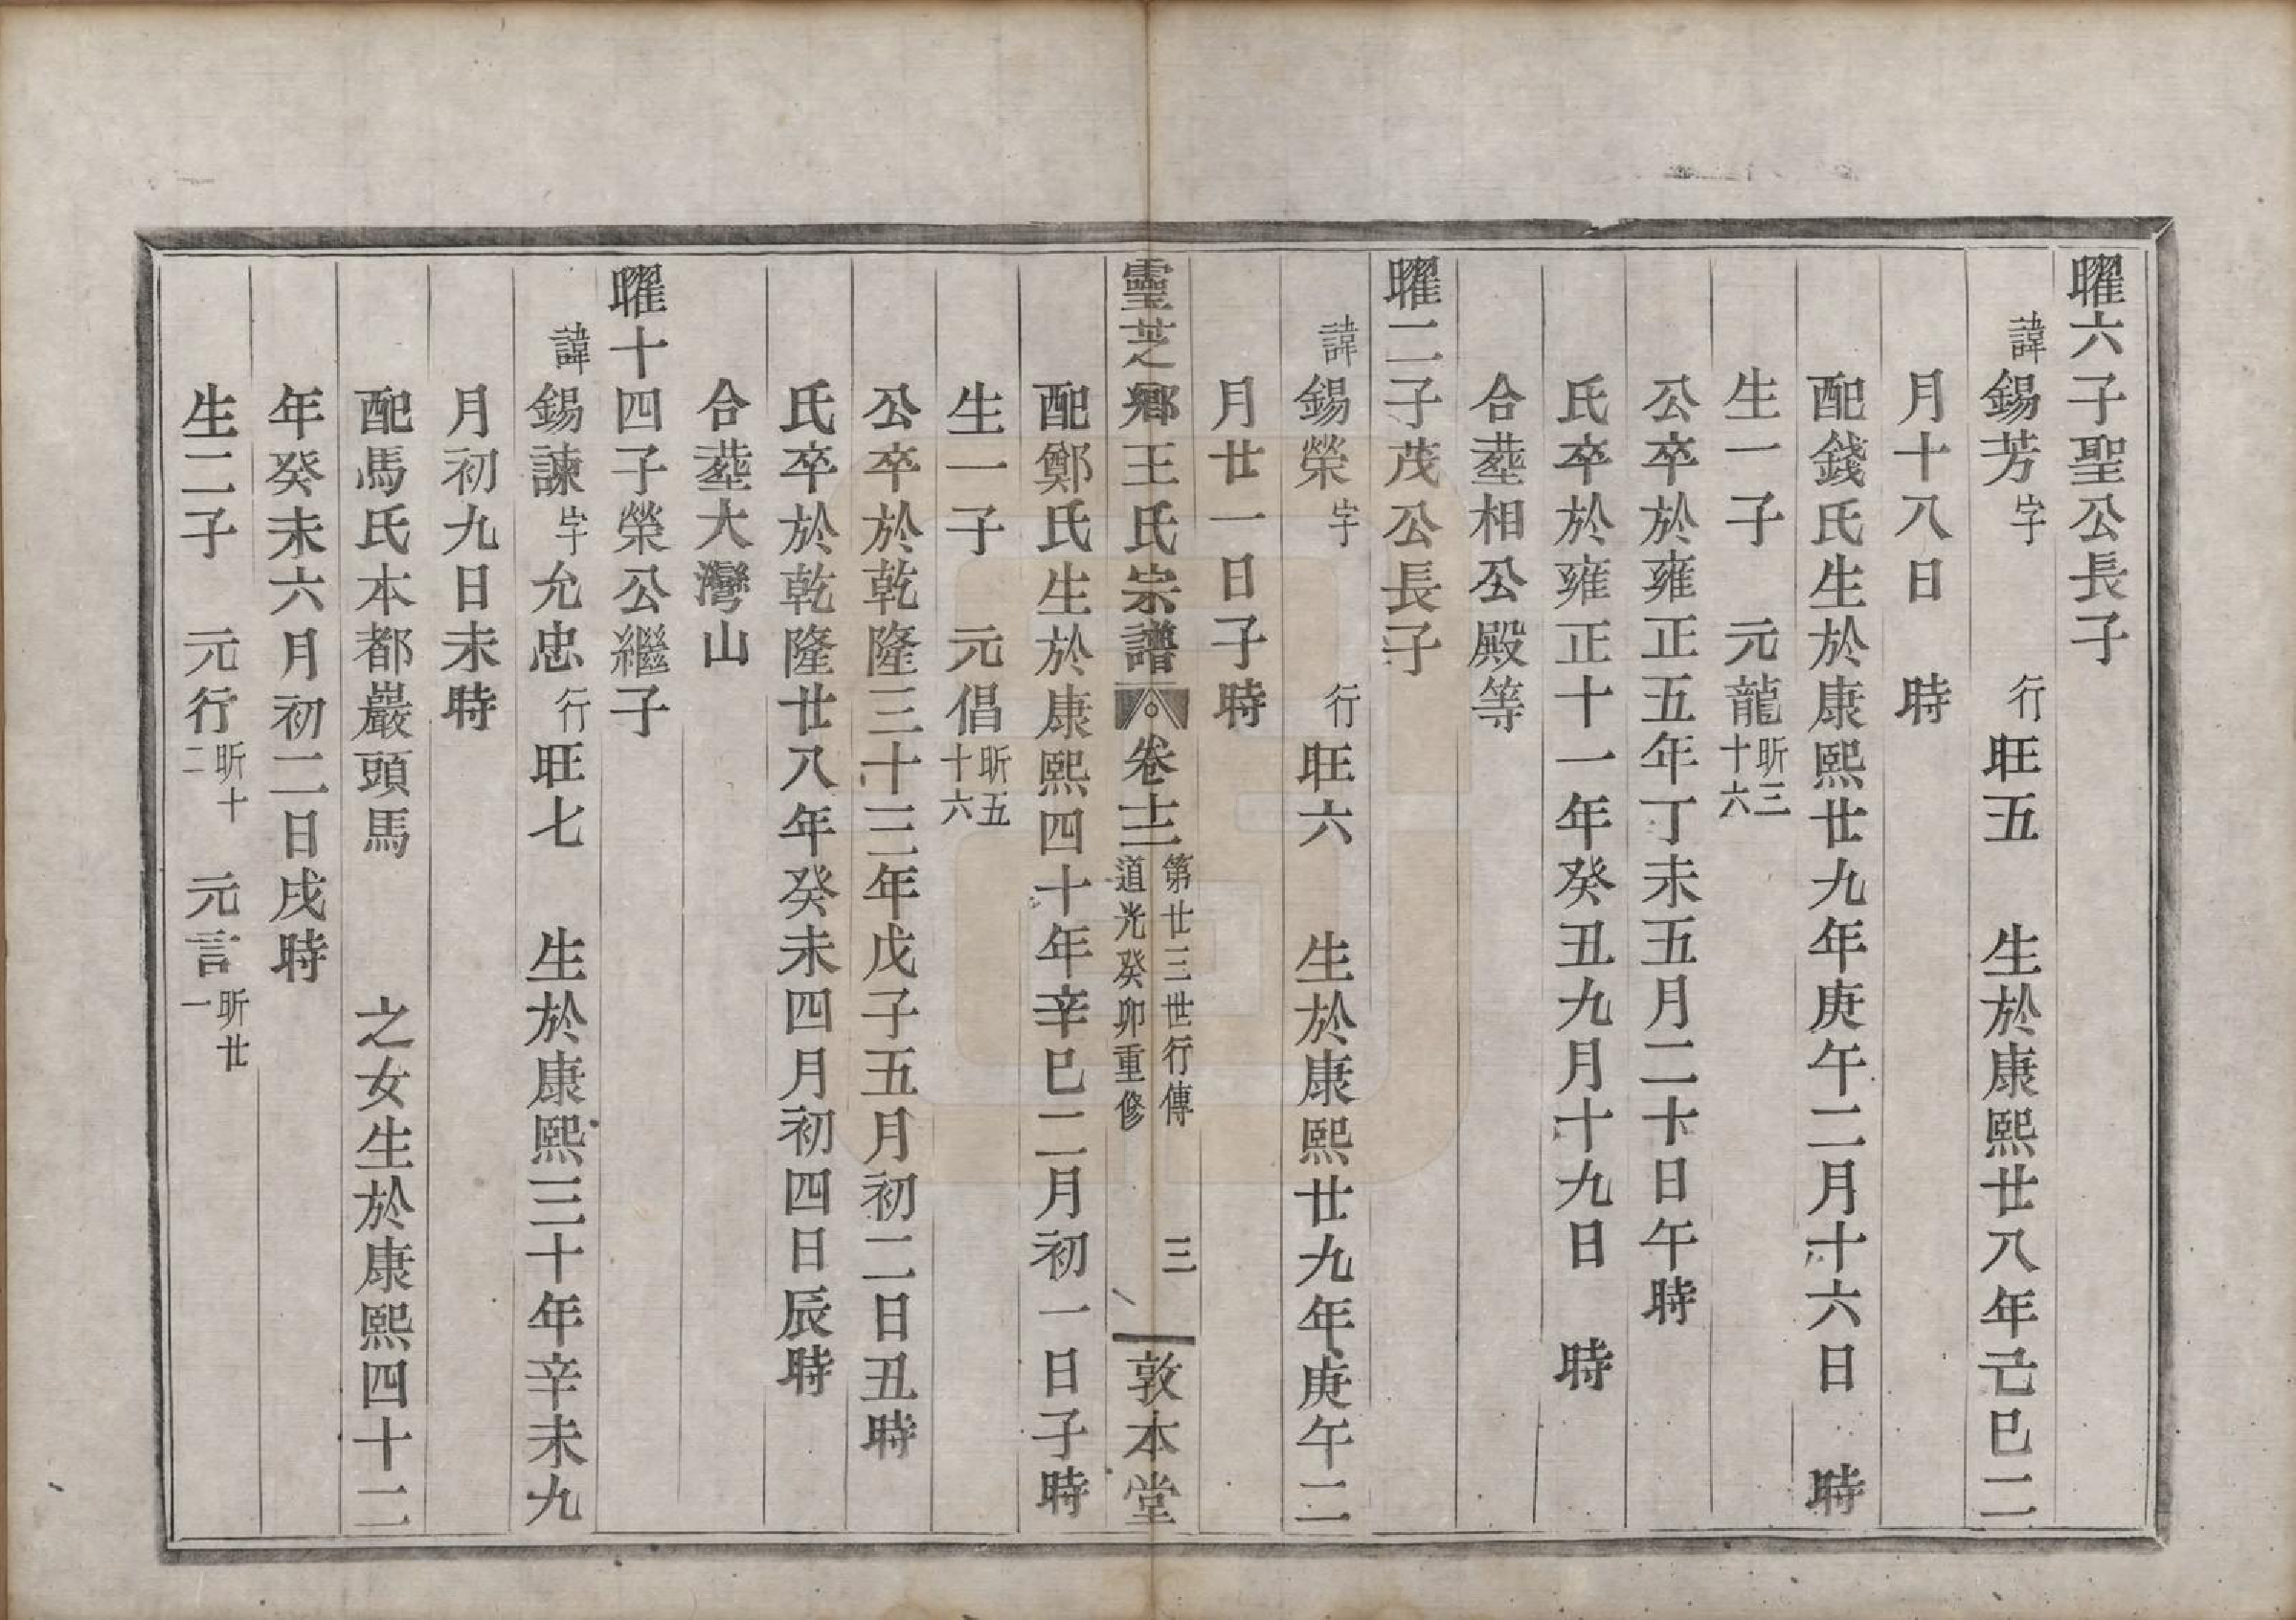 曜六子聖公長子
諱錫芳字　行旺五　生於康熙廿八年己巳二
月十八日　時
配錢氏生於康熙廿九年庚午二月十六日　時
生一子　元龍昕三十六
公卒於雍正五年丁未五月二十日午時
氏卒於雍正十一年癸丑九月十九日　時
合塟相公殿等
曜二子茂公長子
諱錫榮字　行旺六　生於康熙廿九年庚午二
月廿一日子時
靈芝鄉王氏宗譜　卷十二　第廿三世行傳　道光癸卯重修　三　敦本堂
配鄭氏生於康熙四十年辛巳二月初一日子時
生一子　元倡昕五十六
公卒於乾隆三十三年戊子五月初二日丑時
氏卒於乾隆廿八年癸未四月初四日辰時
合塟大灣山
曜十四子榮公繼子
諱錫諫字允忠行旺七　生於康熙三十年辛未九
月初九日未時
配馬氏本都巖頭馬　之女生於康熙四十二
年癸未六月初二日戌時
生二子　元行昕十二　元言昕廿一